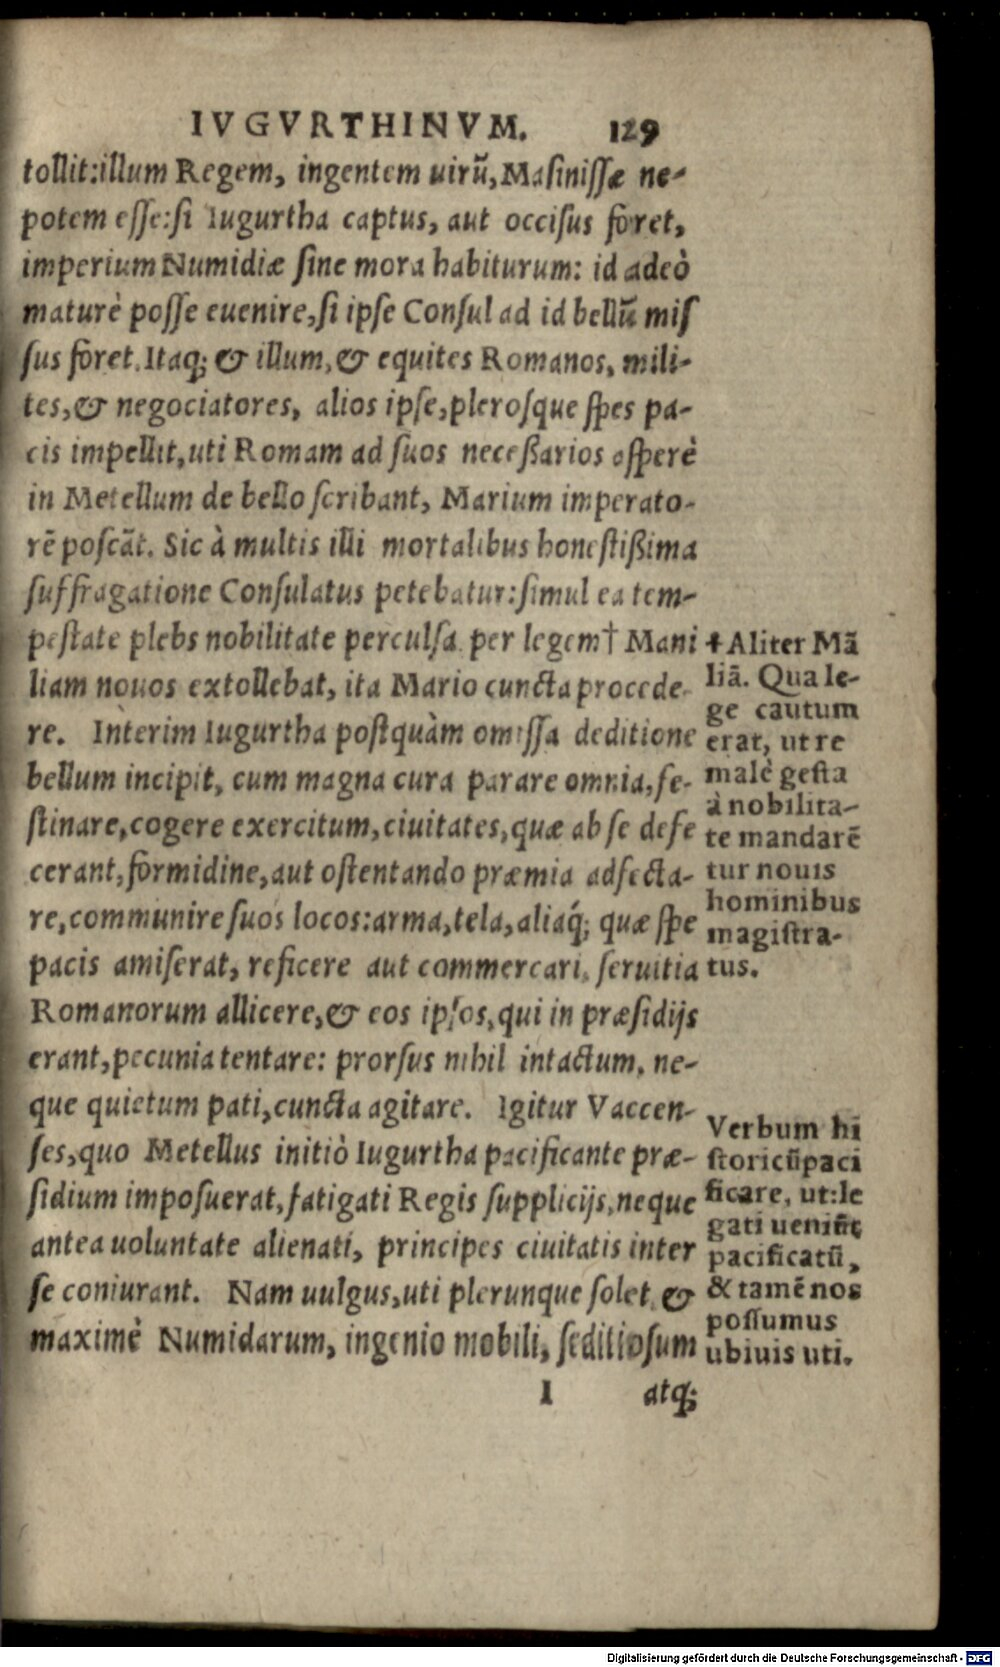 IVGVRTHINVM. 129
tollit:illum Regem, ingentem uirũ, Masinissæ ne-
potem esse:si Iugurtha captus, aut occisus foret,
imperium Numidiæ sine mora habiturum: id adeò
maturè posse euenire, si ipse Consul ad id bellũ mis
sus foret. Itaq; & illum, & equites Romanos, mili-
tes, & negociatores, alios ipse, plerosque spes pa-
cis impellit, uti Romam ad suos neceßarios asperè
in Metellum de bello scribant, Marium imperato-
rẽ poscãt. Sic à multis illi mortalibus honestißima
suffragatione Consulatus petebatur: simul ea tem-
pestate plebs nobilitate perculsa per legem† Mani
liam nouos extollebat, ita Mario cuncta procede-
re. Interim Iugurtha postquàm omissa deditione
bellum incipit, cum magna cura parare omnia, fe-
stinare, cogere exercitum, ciuitates, quæ ab se defe
cerant, formidine, aut ostentando præmia adfecta-
re, communire suos locos: arma, tela, aliaq́; quæ spe
pacis amiserat, reficere aut commercari, seruitia
Romanorum allicere, & eos ipsos, qui in præsidijs
erant, pecunia tentare: prorsus nihil intactum, ne-
que quietum pati, cuncta agitare. Igitur Vaccen-
ses, quo Metellus initiò Iugurtha pacificante præ-
sidium imposuerat, fatigati Regis supplicijs, neque
antea uoluntate alienati, principes ciuitatis inter
se coniurant. Nam uulgus, uti plerunque solet, &
maximè Numidarum, ingenio mobili, seditiosum
I atq;
† Aliter Mã
liã. Qua le-
ge cautum
erat, ut re
malè gesta
à nobilita-
te mandarẽ
tur nouis
hominibus
magistra-
tus.
Verbum hi
storicũ paci
ficare, ut:le
gati ueniũt
pacificatũ,
& tamẽ nos
possumus
ubiuis uti.
Digitalisierung gefördert durch die Deutsche Forschungsgemeinschaft - DFG